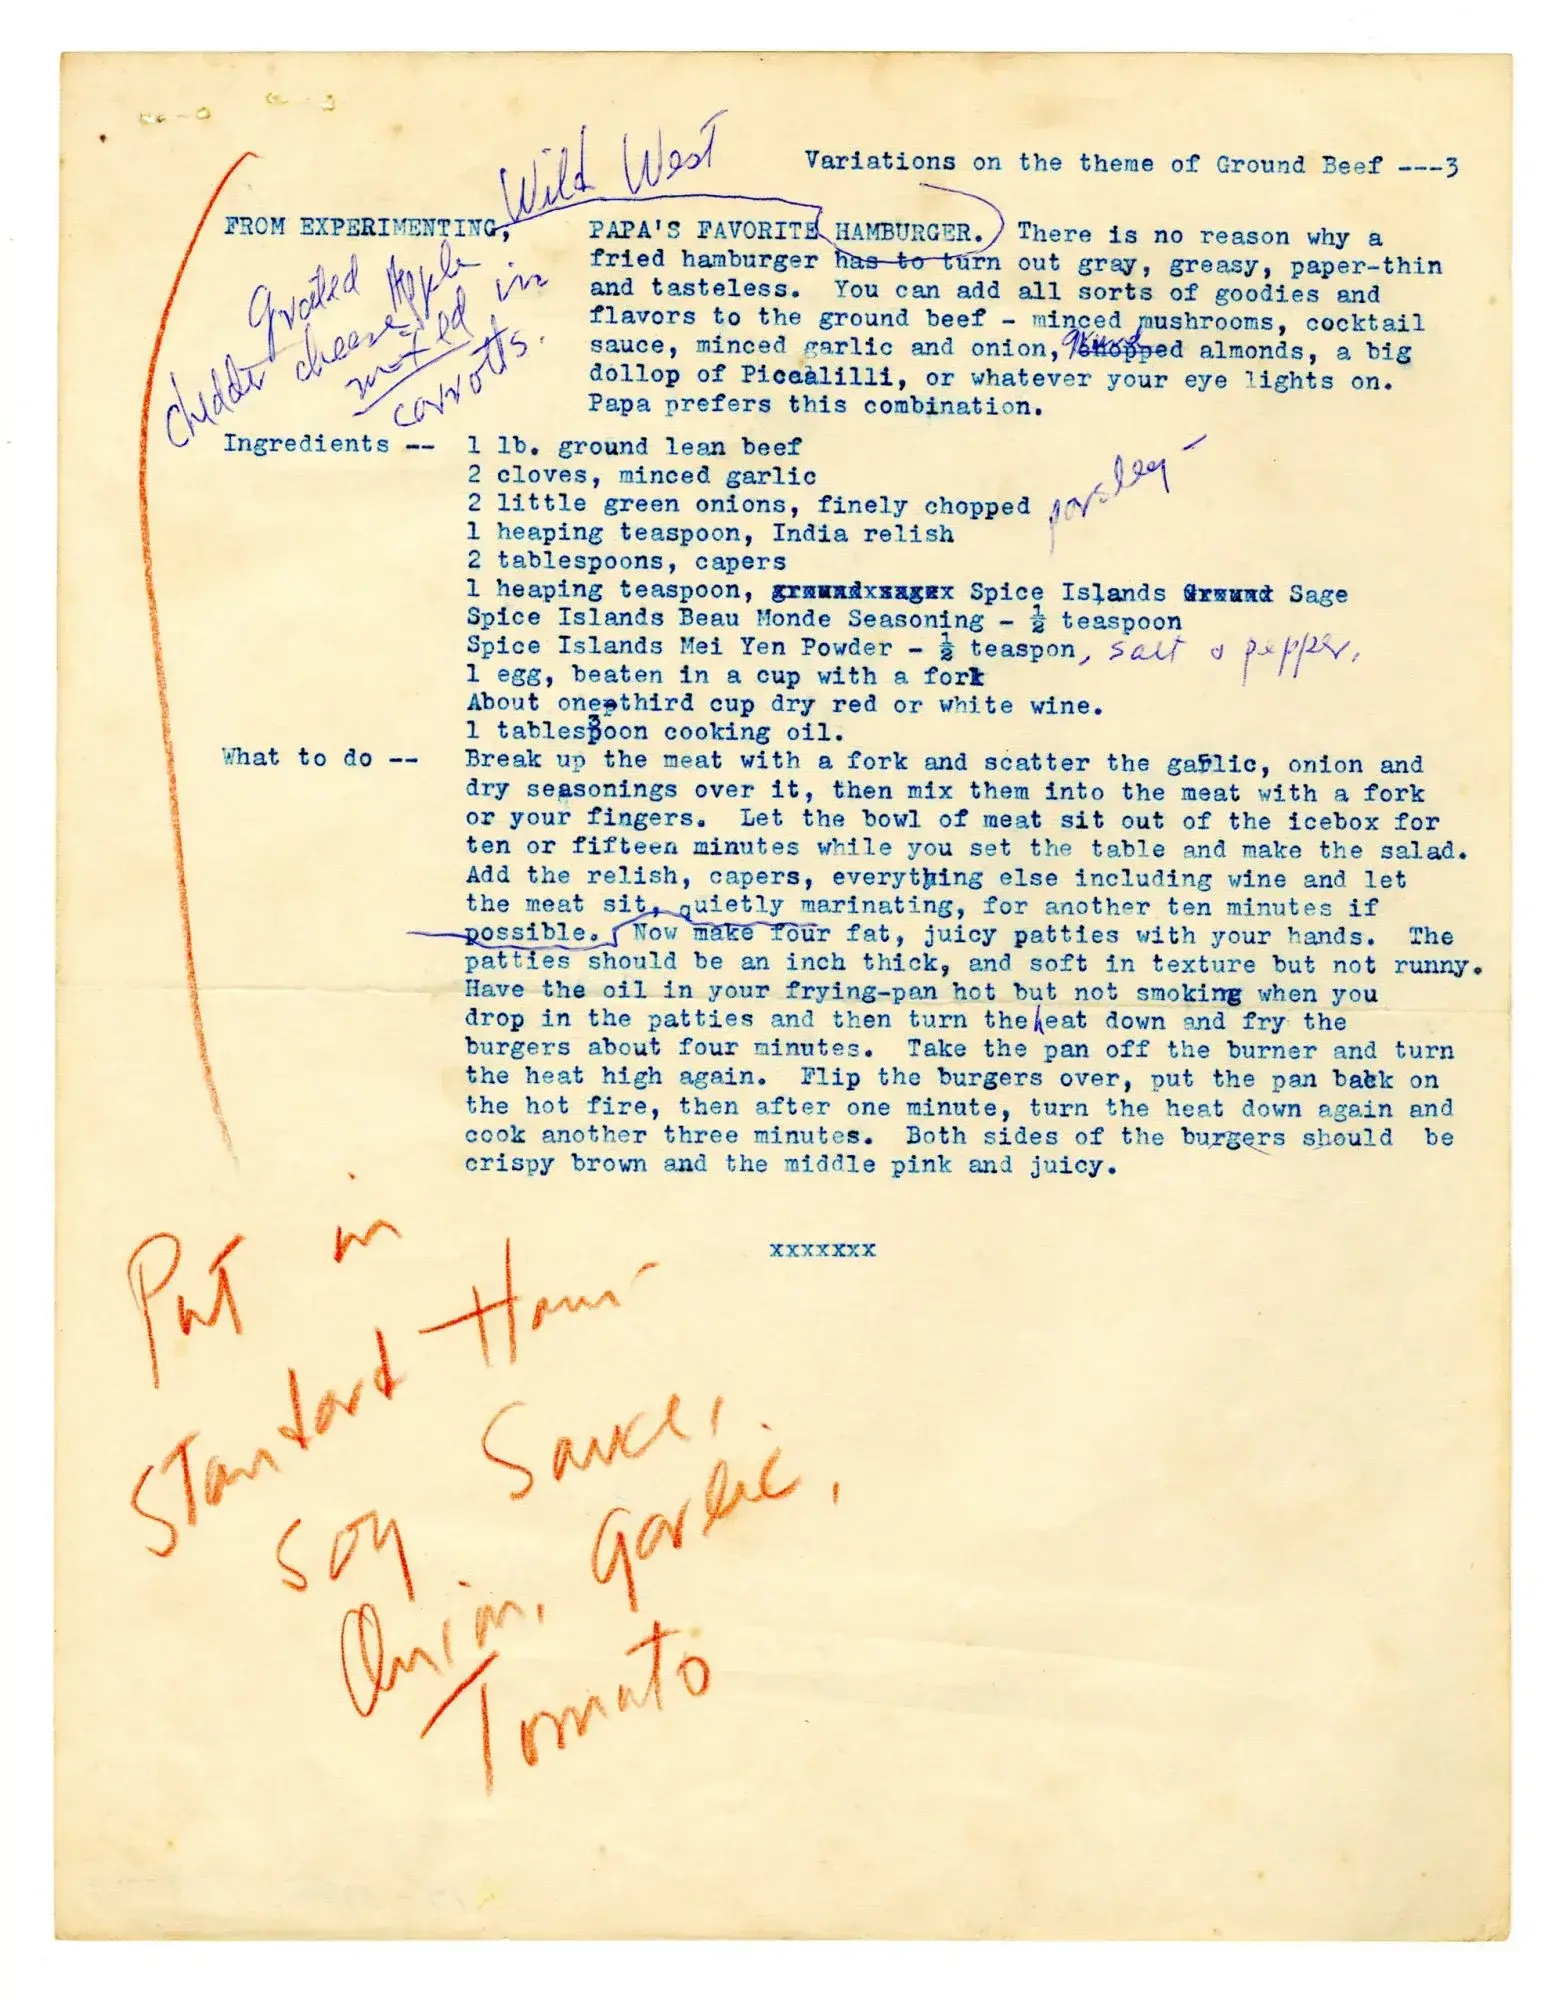 Variations on the theme of Ground Beef ---3
Wild West
FROM EXPERIMENTING, PAPA'S FAVORITE HAMBURGER. There is no reason why a
fried hamburger has to turn out gray, greasy, paper-thin
and tasteless. You can add all sorts of goodies and
flavors to the ground beef - minced mushrooms, cocktail
sauce, minced garlic and onion, chopped almonds, a big
dollop of Piccalilli, or whatever your eye lights on.
Papa prefers this combination.
grated
chedder cheese, Apple
mixed in
carrotts.
Ingredients -- 1 lb. ground lean beef
2 cloves, minced garlic
2 little green onions, finely chopped parsley -
1 heaping teaspoon, India relish
2 tablespoons, capers
1 heaping teaspoon, Spice Islands Sage
Spice Islands Beau Monde Seasoning - ½ teaspoon
Spice Islands Mei Yen Powder - ½ teaspon, salt & pepper,
1 egg, beaten in a cup with a fork
About one-third cup dry red or white wine.
1 tablespoon cooking oil.
What to do -- Break up the meat with a fork and scatter the garlic, onion and
dry seasonings over it, then mix them into the meat with a fork
or your fingers. Let the bowl of meat sit out of the icebox for
ten or fifteen minutes while you set the table and make the salad.
Add the relish, capers, everything else including wine and let
the meat sit, quietly marinating, for another ten minutes if
possible. Now make four fat, juicy patties with your hands. The
patties should be an inch thick, and soft in texture but not runny.
Have the oil in your frying-pan hot but not smoking when you
drop in the patties and then turn the heat down and fry the
burgers about four minutes. Take the pan off the burner and turn
the heat high again. Flip the burgers over, put the pan back on
the hot fire, then after one minute, turn the heat down again and
cook another three minutes. Both sides of the burgers should be
crispy brown and the middle pink and juicy.
xxxxxxx
Put in
Standard Ham-
Soy Sauce,
Onion, Garlic,
Tomato